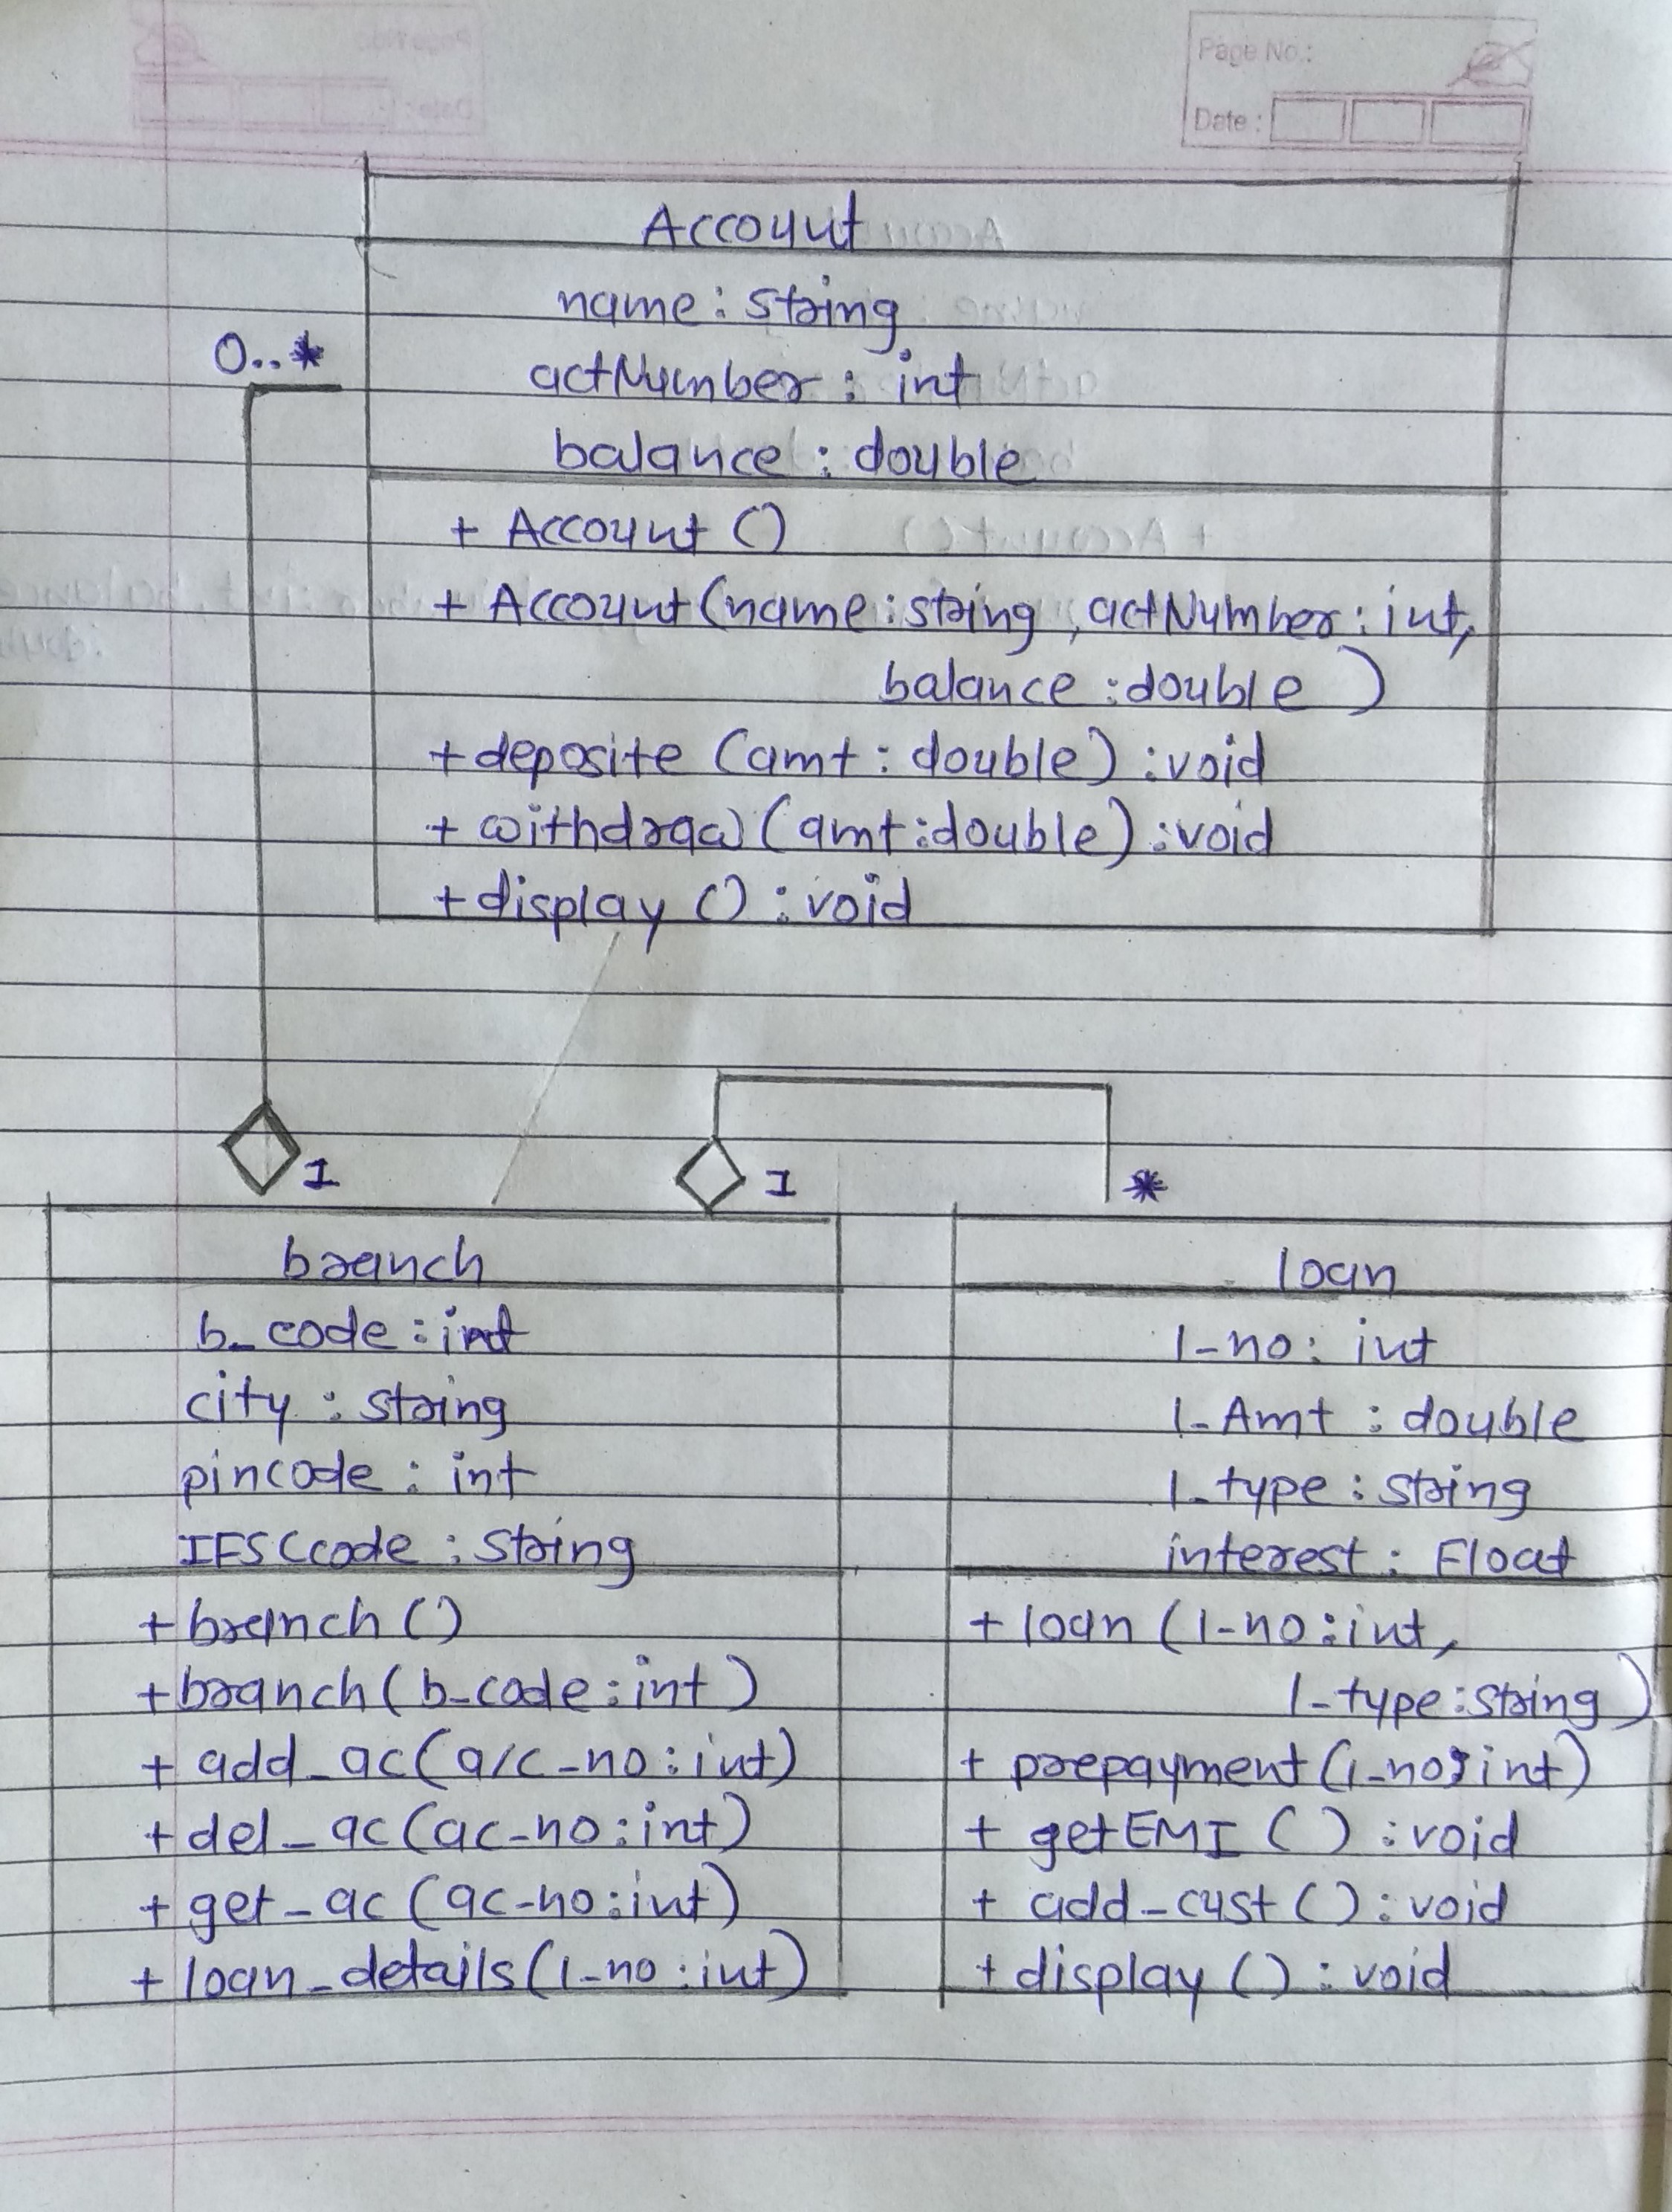 Page No.:
Date:
Account
name : string
actNumber : int
balance : double
+ Account ()
+ Account (name : string , actNumber : int,
balance : double )
+ deposite (amt : double) : void
+ withdraw (amt : double) : void
+ display () : void
0..*
1
1
*
branch
b_code : int
city : string
pincode : int
IFSCcode : string
+ branch ()
+ branch ( b-code : int )
+ add_ac (a/c-no : int)
+ del_ac (ac-no : int)
+ get-ac (ac-no : int)
+ loan_details (l-no : int)
loan
l-no : int
l-Amt : double
l_type : string
interest : Float
+ loan (l-no : int,
l-type : string)
+ prepayment (l-no : int)
+ getEMI ( ) : void
+ add-cust ( ) : void
+ display () : void